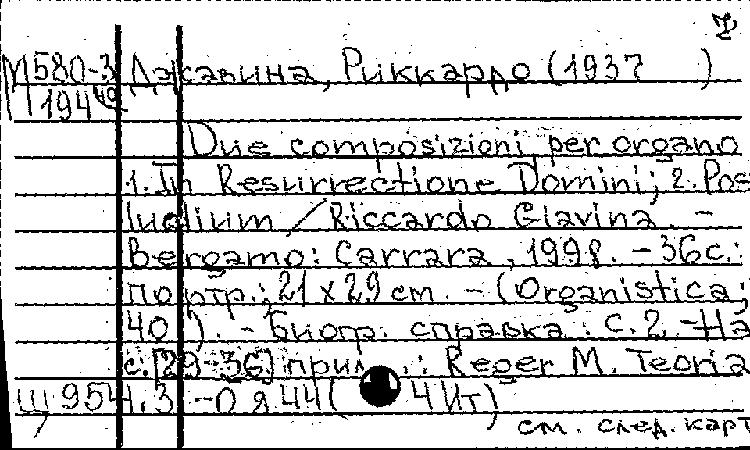 М580-3 Джавина, Риккардо (1937 )
194
Due composizioni per organo
1. In Resurrectione Domini; 2. Pos
ludium / Riccardo Giavina. -
Bergamo: Carrara, 1998. - 36с.:
портр.; 21 x 29 cm. - (Organistica;
40). - Биогр. справка: с. 2. - На
с. [29-36] прил.: Reger M. Teoria
Щ 954.3 - 0 я 44 ( 4 Ит)
см. след. карт